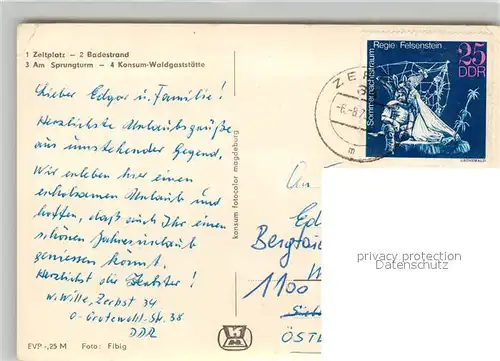 1 Zeltplatz – 2 Badestrand
3 Am Sprungturm – 4 Konsum-Waldgaststätte
Lieber Edgar u. Familie!
Herzlichste Urlaubsgrüße
aus umstehender Gegend.
Wir erleben hier einen
erholsamen Urlaub und
hoffen, daß auch Ihr einen
schönen Jahresurlaub
genießen könnt.
Herzlichst die Zerbster!
W. Wille, Zerbst 34
O-Grotewohl-St. 38
DDR
EVP -,25 M Foto: Fibig
konsum fotocolor magdeburg
Regie Felsenstein
25
DDR
Sommernachtstraum
GRÜNEWALD
ZER
-6.-8.7
m
An
Ed
Bergfai
W
1100
ÖST
privacy protection
Datenschutz